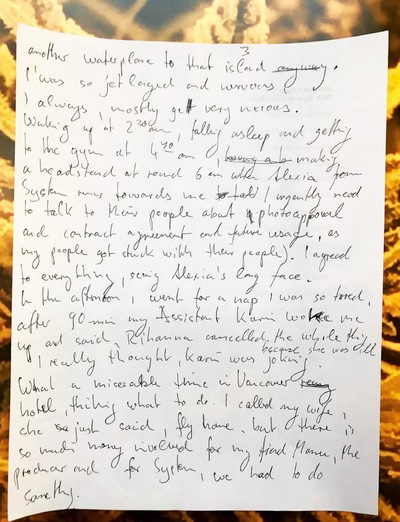 3
another waterplane to that island anyway.
I was so jet laged and nervous,
I always mostly get very nerous.
Waking up at 2 20 am, falling asleep and getting
to the gym at 4 40 am, having a making
a headstand at round 6 am when Alexia from
System runs towards me I urgently need
to talk to their people about photoapproval
and contract agreement and future usage, as
my people got stuck with their people). I agreed
to everything, seeing Alexia's long face.
In the afternoon, I went for a nap I was so tored,
after 90 min my Assistent Karin woke me
up and said, Rihanna cancelled, the whole thing
because she was ill
I really thought, Karin was joking.
What a miserable time in Vancover
hotel, thiking what to do. I called my wife,
she just said, fly home. but there is
so much money involved for my friend Manu, the
producer and for System, we had to do
something.